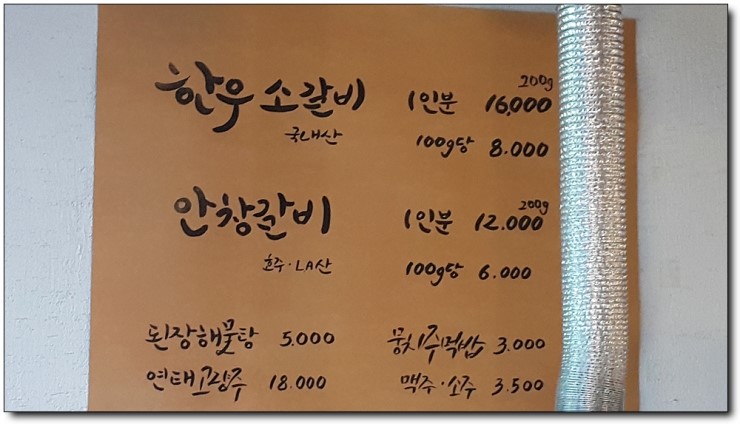 한우 소갈비 1인분 200g 16,000
국내산 100g당 8.000
안창갈비 1인분 200g 12.000
호주·LA산 100g당 6.000
된장해물탕 5.000 뭉치주먹밥 3.000
연태고량주 18.000 맥주·소주 3.500